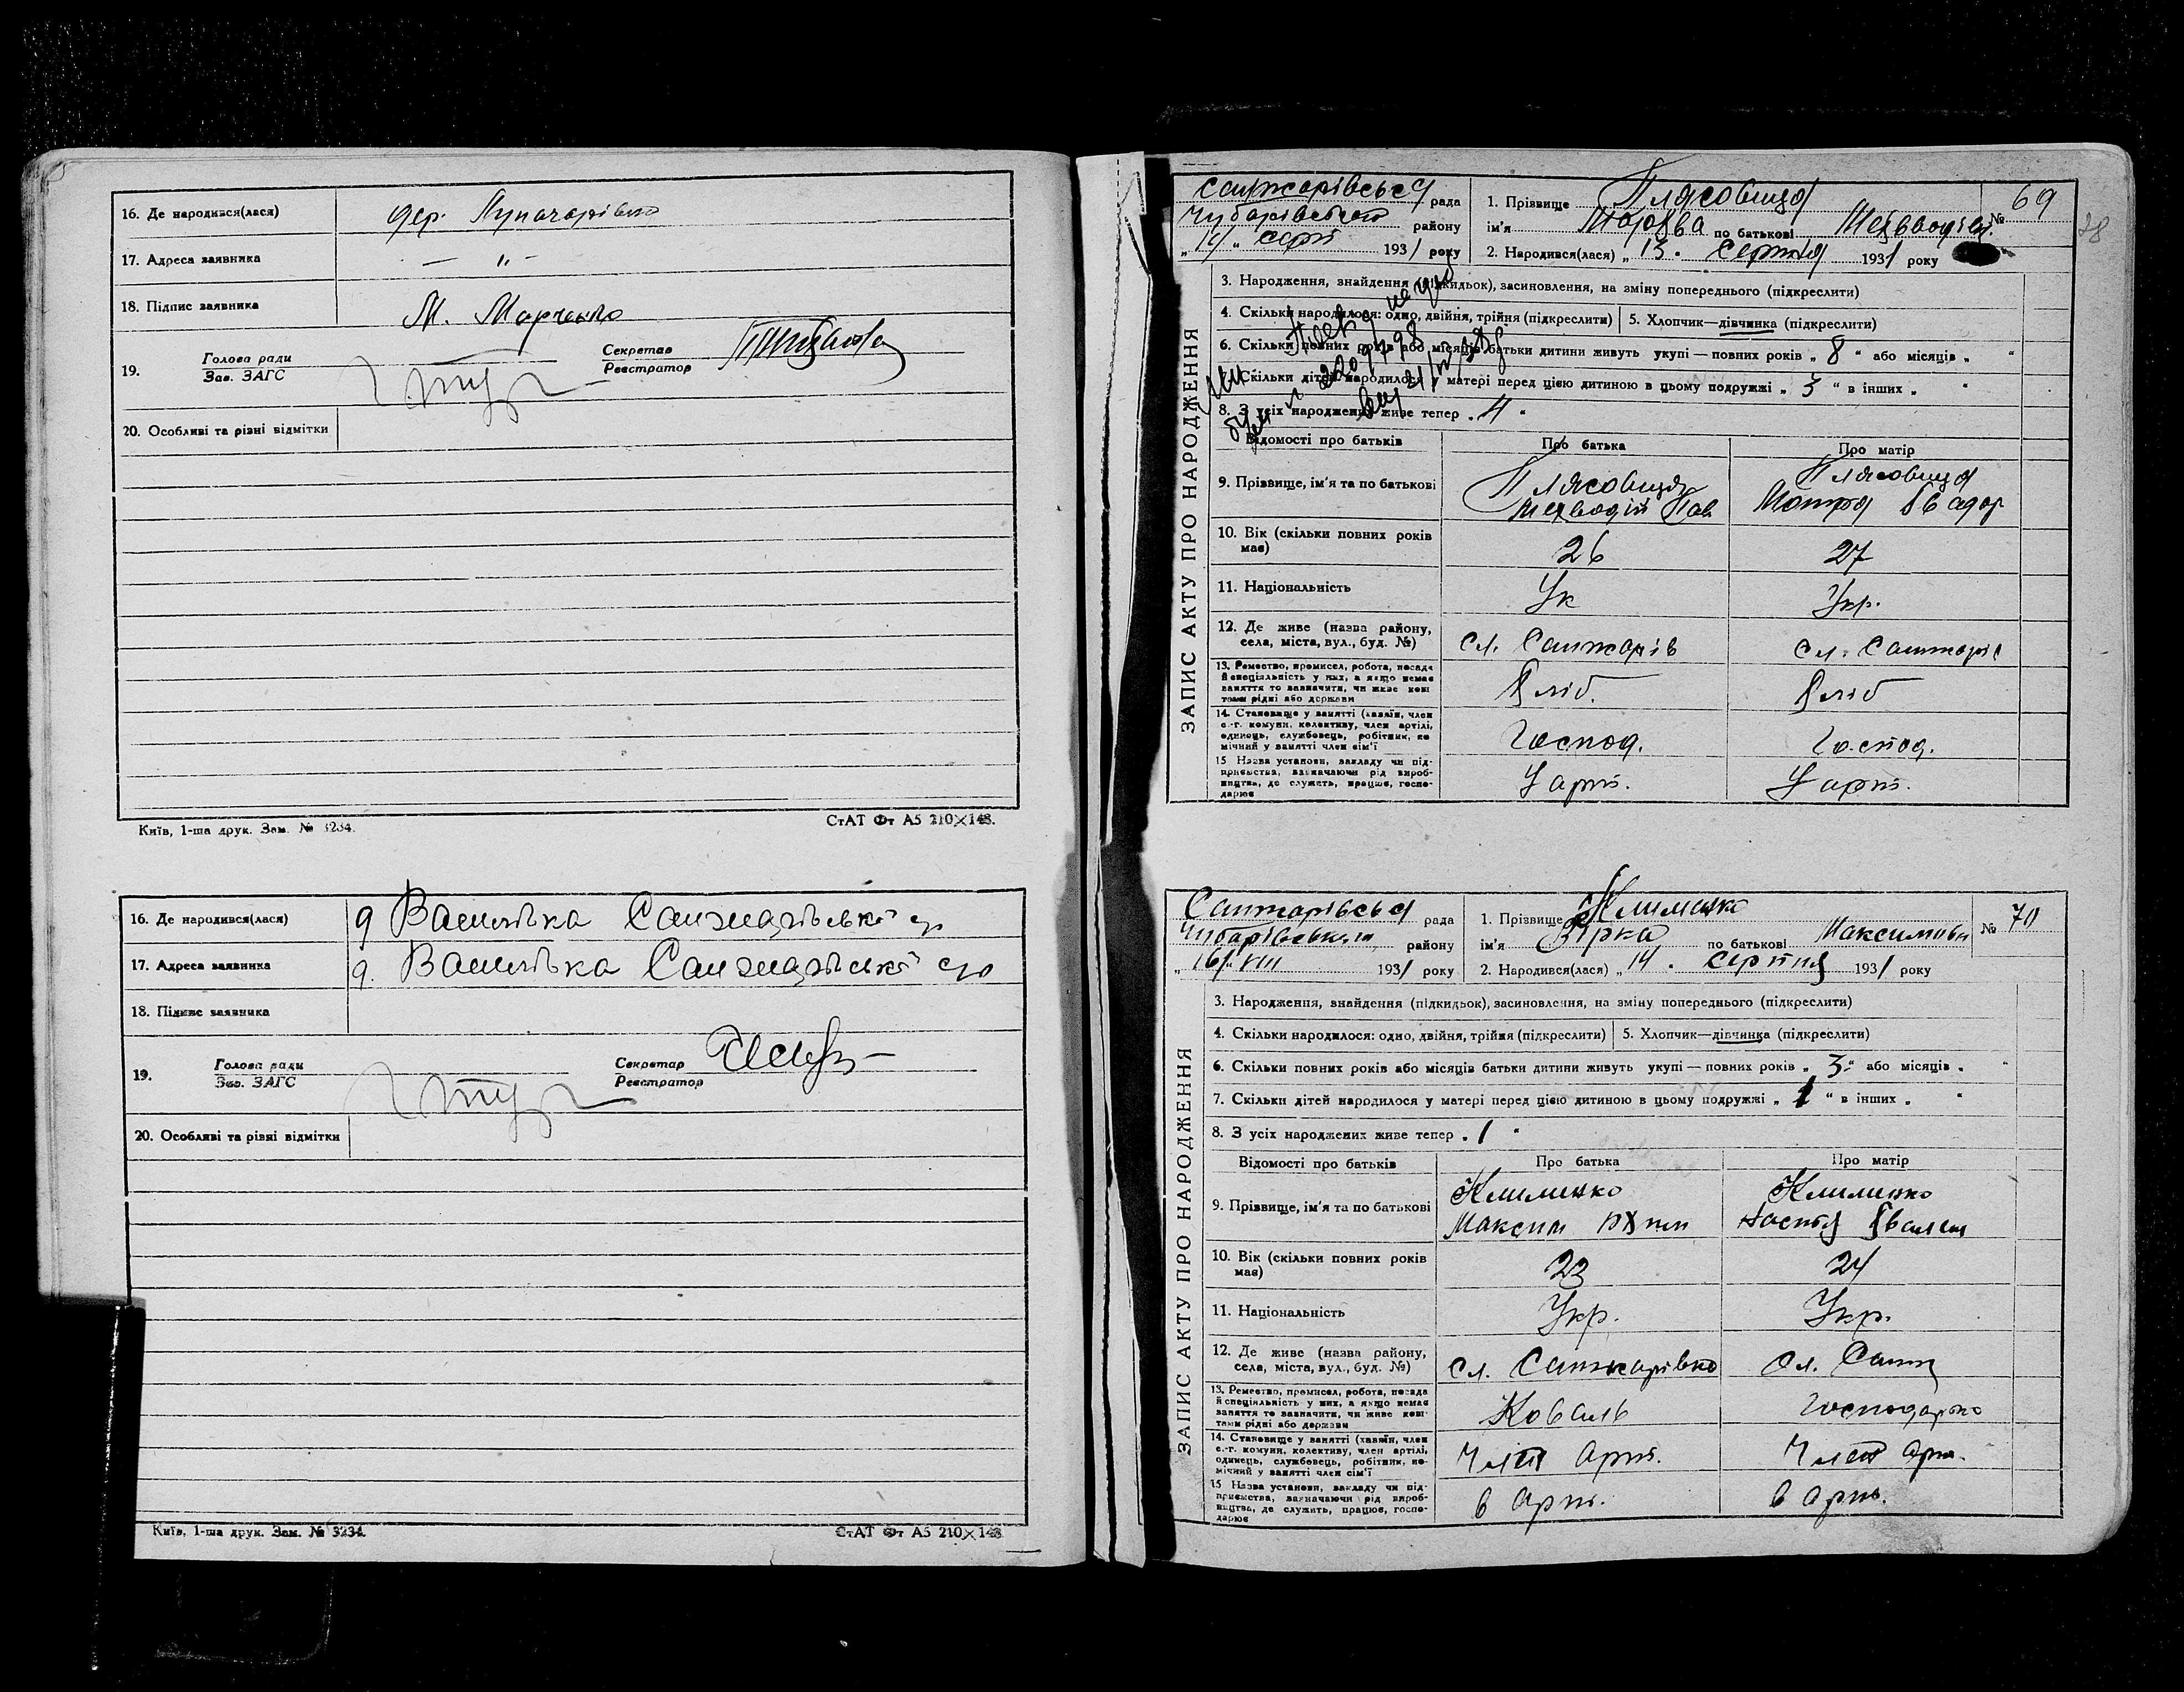 16. Де народився(лася) дер. Луначарівка
17. Адреса заявника — „ —
18. Підпис заявника М. Марченко
19. Голова ради
Зав. ЗАГС
Секретар
Реєстратор
20. Особливі та різні відмітки
Київ, 1-ша друк. Зам. № 3234.
СтАТ Фт А5 210×148.
16. Де народився(лася) д Василівка Санжарівської с/р
17. Адреса заявника д. Василівка Санжарівської с/р
18. Підпис заявника
19. Голова ради
Зав. ЗАГС
Секретар
Реєстратор
20. Особливі та різні відмітки
Київ, 1-ша друк. Зам. № 3234.
СтАТ Фт А5 210×148
Санжарівська рада
Чубарівського району
„14“ серп 1931 року
1. Прізвище Плясовиця
ім'я по батькові
№ 69
2. Народився(лася) „13. Серпня 1931 року
38
ЗАПИС АКТУ ПРО НАРОДЖЕННЯ
3. Народження, знайдення (підкидьок), засиновлення, на зміну попереднього (підкреслити)
4. Скільки народилося: одно, двійня, трійня (підкреслити) 5. Хлопчик—дівчинка (підкреслити)
6. Скільки повних років або місяців батьки дитини живуть укупі — повних років „ 8 “ або місяців „ “
7. Скільки дітей народилося у матері перед цією дитиною в цьому подружжі „ 3 “ в інших „ “
8. З усіх народжених живе тепер „ 4 “
Відомості про батьків Про батька Про матір
9. Прізвище, ім'я та по батькові Плясовиця Плясовиця
Мехводій Пав Мотря
10. Вік (скільки повних років має) 26 27
11. Національність Ук Укр.
12. Де живе (назва району, села, міста, вул., буд. №) сл. Санжарів сл. Санжарів
13. Ремество, промисел, робота, посада й спеціяльність у них, а якщо немає заняття то зазначити, чи живе коштами рідні або держави Хліб. Хліб
14. Становище у занятті (хазяїн, член с.-г. комуни, колективу, член артілі, одинець, службовець, робітник, помічний у занятті член сім'ї Господ. Господ.
15 Назва установи, закладу чи підприємства, зазначаючи рід виробництва, де служить, працює, господарює У арт. У арт.
Санжарівська рада
Чубарівського району
„16/“ VIII 1931 року
1. Прізвище Клименко
ім'я Вірка по батькові Максимівн
№ 70
2. Народився(лася) „14. Серпня 1931 року
ЗАПИС АКТУ ПРО НАРОДЖЕННЯ
3. Народження, знайдення (підкидьок), засиновлення, на зміну попереднього (підкреслити)
4. Скільки народилося: одно, двійня, трійня (підкреслити) 5. Хлопчик—дівчинка (підкреслити)
6. Скільки повних років або місяців батьки дитини живуть укупі — повних років „ 3 “ або місяців „ “
7. Скільки дітей народилося у матері перед цією дитиною в цьому подружжі „ 1 “ в інших „ “
8. З усіх народжених живе тепер „ 1 “
Відомості про батьків Про батька Про матір
9. Прізвище, ім'я та по батькові Клименко Клименко
Максим Настя
10. Вік (скільки повних років має) 23 24
11. Національність Укр. Укр.
12. Де живе (назва району, села, міста, вул., буд. №) сл. Санжарівка Сл. Санж
13. Ремество, промисел, робота, посада й спеціяльність у них, а якщо немає заняття то зазначити, чи живе коштами рідні або держави Коваль Господарка
14. Становище у занятті (хазяїн, член с.-г. комуни, колективу, член артілі, одинець, службовець, робітник, помічний у занятті член сім'ї Член Арт. Член Арт.
15 Назва установи, закладу чи підприємства, зазначаючи рід виробництва, де служить, працює, господарює в Арт. в Арт.